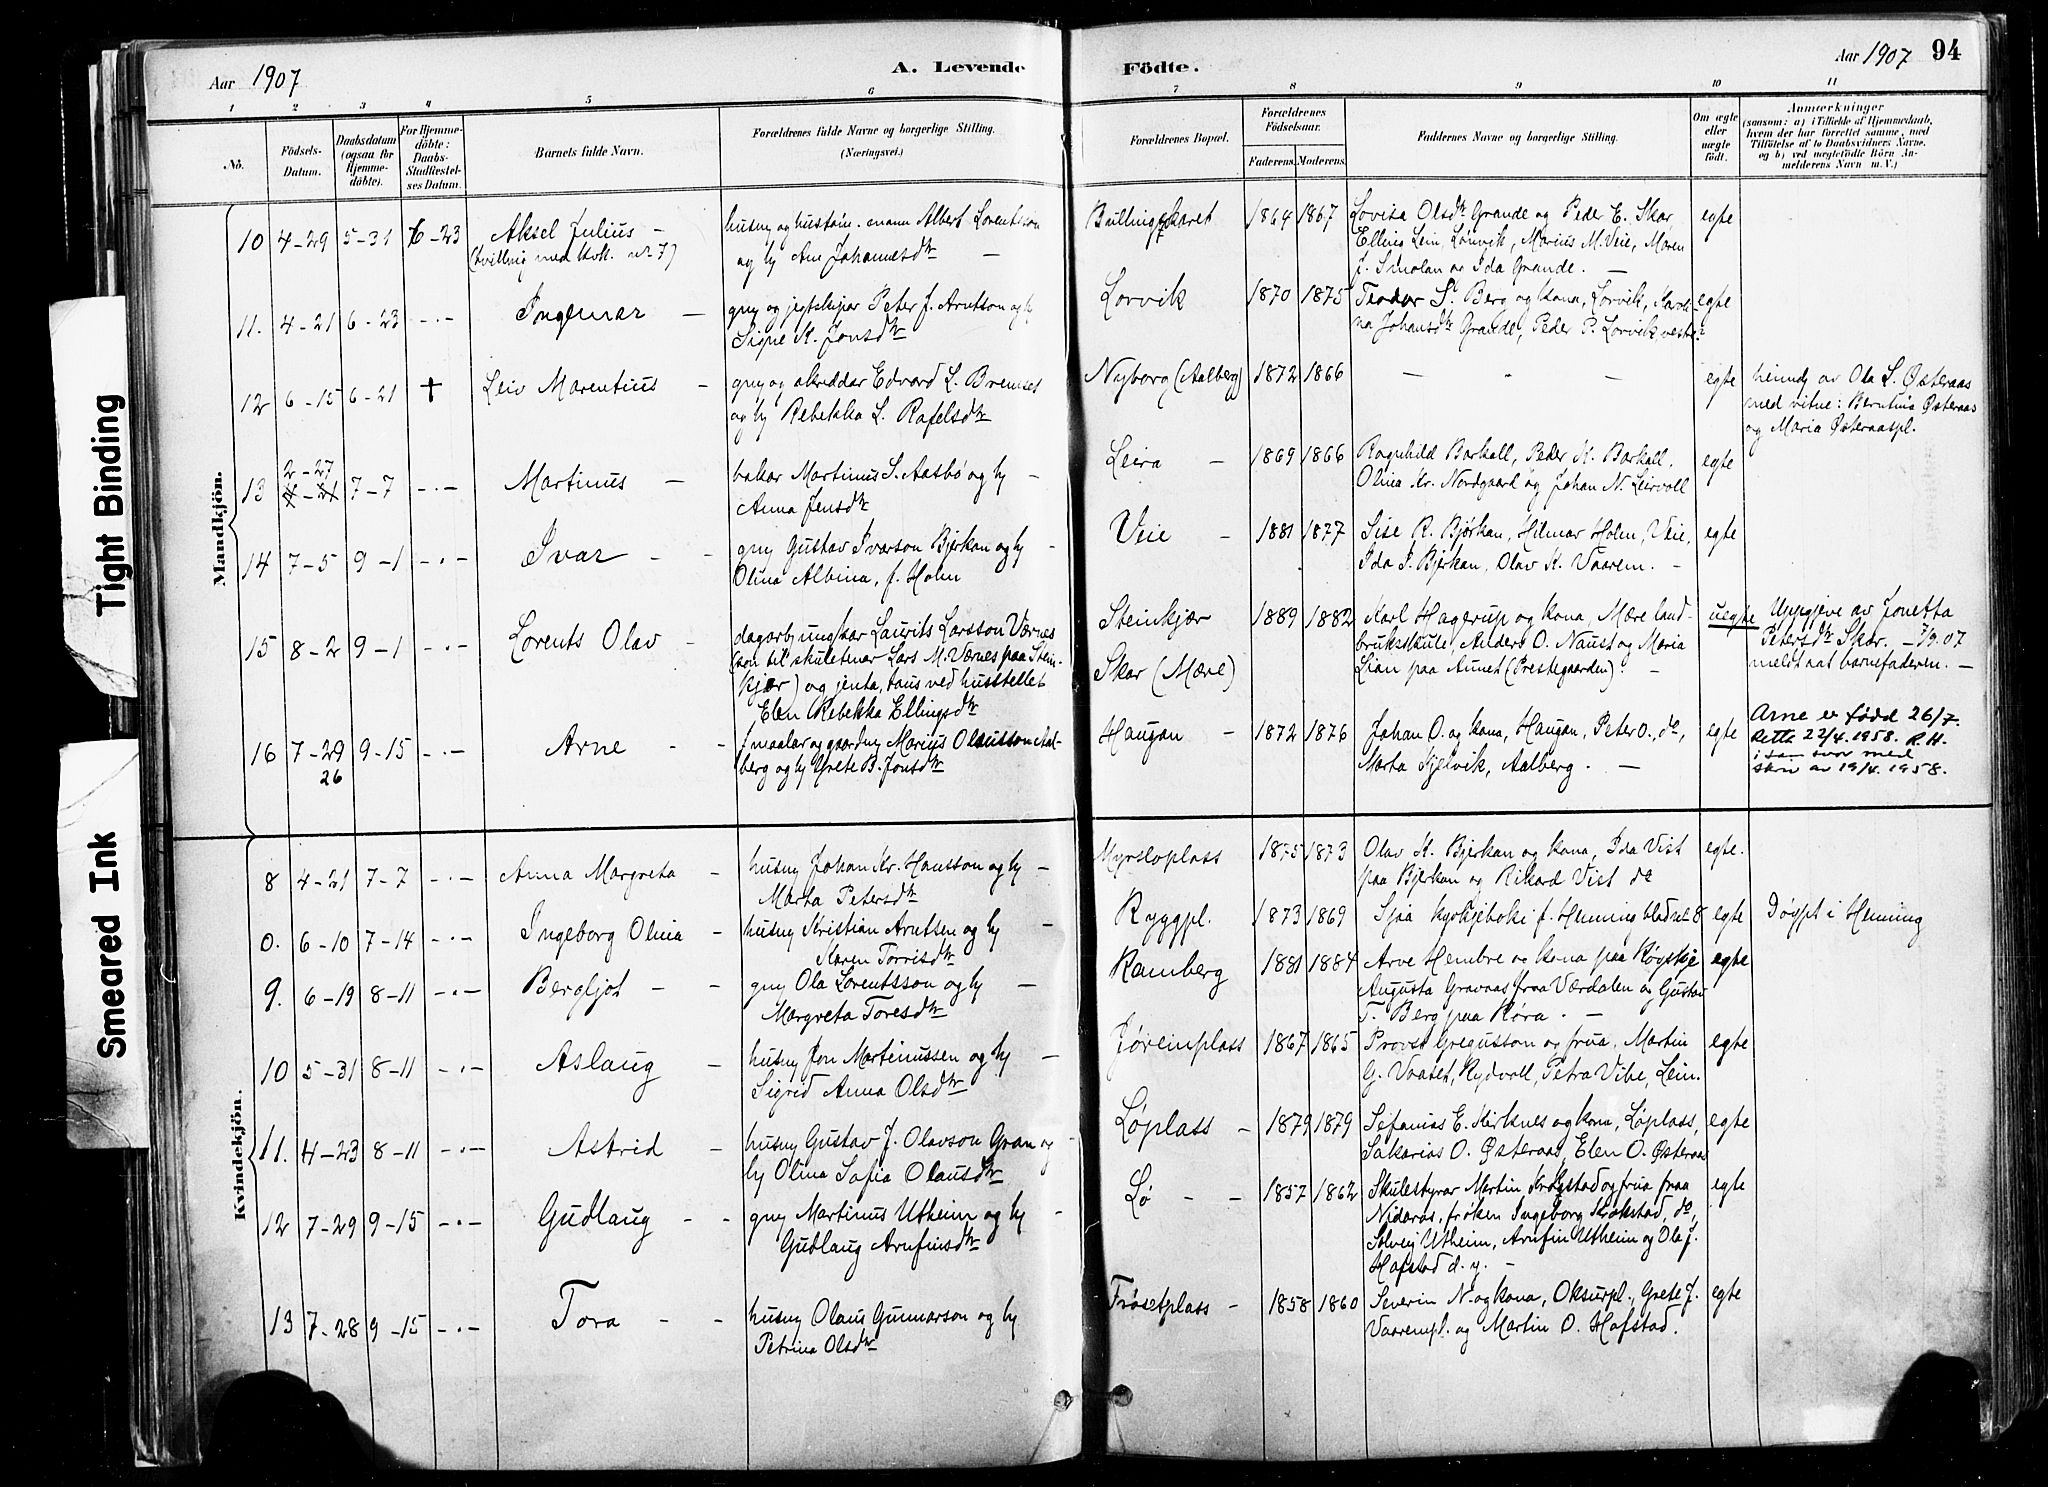 Aar 1907
A. Levende Födte.
Aar 1907 94
1 2 3 4 5 6 7 8 9 10 11
No.
Födsels-
Datum.
Daabsdatum
(ogsaa for
Hjemme-
döbte).
For Hjemme-
döbte:
Daabs-
Stadfæstel-
ses Datum.
Barnets fulde Navn.
Forældrenes fulde Navne og borgerlige Stilling.
(Næringsvei.)
Forældrenes Bopæl.
Forældrenes
Födselsaar.
Faderens. Moderens.
Faddernes Navne og borgerlige Stilling.
Om ægte
eller
uægte
födt.
Anmærkninger
(saasom: a) i Tilfælde af Hjemmedaab,
hvem der har forrettet samme, med
Tilföielse af to Daabsvidners Navne,
og b) ved uægtefödte Börn An-
melderens Navn m. V.)
Tight Binding
Smeared Ink
Mandkjön.
10 4-29 5-31 6-23 Aksel Julius -
(tvilling med kvk. nr 7)
husmy og hustöm. mann Albert Lorentsson
og hy Ane Johannesdtr -
Bullingskaret 1864 1867
Lovisa Olsdtr Grande og Peder E. Skar,
Elling Lein, Lønvik, Marius M. Veie, Maren
J. Smolan og Ida Grande. -
egte
11. 4-21 6-23 -.- Ingemar -
gmy og jegtskipar Peter J. Arntson og hy
Signe K. Jonsdtr
Lorvik 1870 1875
Teodor St. Berg og kona, Lorvik, Karle-
na Johansdtr Grande, Peder P. Lorvik vestre
egte
12 6-15 6-21 + Leiv Marentius -
gmy og skreddar Edvard L. Bremset
og hy Rebekka L. Rafelsdtr
Nyborg (Aalberg) 1872 1866 - " -
egte
heimdy av Ola L. Østeraas
med vitne: Berntina Østeraas
og Maria Østeraaspl.
13 2-27
4-21 7-7 -.- Martinus -
bakar Martinus S. Aasbö og hy -
Anna Jensdtr
Leira - 1869 1866
Ragnhild Barkall, Peder K. Barkall,
Olina Kr. Nordgaard og Johan N. Leirvoll
egte
14 7-5 9-1 -.- Ivar - -
gmy Gustav Ivarson Bjerkan og hy -
Olina Albina, f. Holm
Veie - 1881 1877
Sise R. Bjørkan, Hilmar Holm, Veie,
Ida I. Bjerkan, Olav K. Vaarem. -
egte
15 8-2 9-1 -.- Lorents Olav -
dagarb. ungkar Laurits Larsson Værnes
(son til skuletenar Lars M. Værnes paa Stein-
kjær) og jenta, taus ved husstellet
Elen Rebekka Ellingsdtr
Steinkjær 1889 1882
Skar (Mære)
Karl Hagerup og kona, Mære land-
brukskule, Anders O. Naust og Maria
Lian paa Aunet (Prestegaarden). -
uegte
Uppgjeve av Jonetta
Petersdtr Skar. - 7/9.07
meldt aat barnefaderen. -
16 7-29 9-15 -.- Arne - -
26
maalar og gaardmy Marius Olausson Aal-
berg og hy Grete B. Jonsdtr
Haugan - 1872 1876
Johan O. og kona, Haugan, Peter O., do,
Marta Kjelvik, Aalberg. -
egte
Arne er född 26/7.
Retta 22/4.1958. R.H.
i samsvar med
skriv av 19/4. 1958.
Kvindekjön.
8 4-21 7-7 -.- Anna Margreta -
husmy Johan Kr. Hansson og hy -
Marta Petersdtr
Myrsloplass 1875 1873
Olav K. Bjerkan og kona, Ida Vist
paa Bjerkan og Rikard Vist do
egte.
0. 6-10 7-14 -.- Ingeborg Olina -
husmy Kristian Arntsen og hy -
Karen Torrisdtr
Ryggpl. 1873 1869
Sjaa kyrkjeboki f. Henning blad nr 8
egte
Döypt i Henning
9. 6-19 8-11 -.- Bergljot - -
gmy Ola Lorentsson og hy -
Margreta Toresdtr
Ramberg 1881 1884
Arve Hembre og kona paa Røyskje
Augusta Gravaas fraa Værdalen og Gustav
T. Berg paa Røra. -
egte
10 5-31 8-11 -.- Aslaug -
husmy Jon Martinussen og hy -
Sigrid Anna Olsdtr
Jøremplass 1867 1865
Provst Gregusson og frua, Martin
G. Vaaset, Rydvoll, Petra Vibe, Lein.
egte
11. 4-23 8-11 -.- Astrid -
husmy Gustav J. Olavson Gran og
hy Olina Sofia Olausdtr
Løplass - 1879 1879
Sefanias E. Kirknes og kona, Løplass,
Sakarias O. Østeraas, Elen O. Østeraas
egte
12 7-29 9-15 -.- Gudlaug - -
gmy Martinus Utheim og hy -
Gudlaug Arnfinsdtr
Lø - - 1857 1862
Skulestyrar Martin Krogstad og frua fraa
Nidaros, frøken Ingeborg Krokstad, do,
Solveig Utheim, Arnfin Utheim og Ola J.
Hafstad d. y. -
egte
13 7-28 9-15 -.- Tora - -
husmy Olaus Gunnarson og hy
Petrina Olsdtr
Frøsetplass - 1858 1860
Severin N. og kona, Oksurpl., Grete J.
Vaarempl. og Martin O. Hafstad.
egte